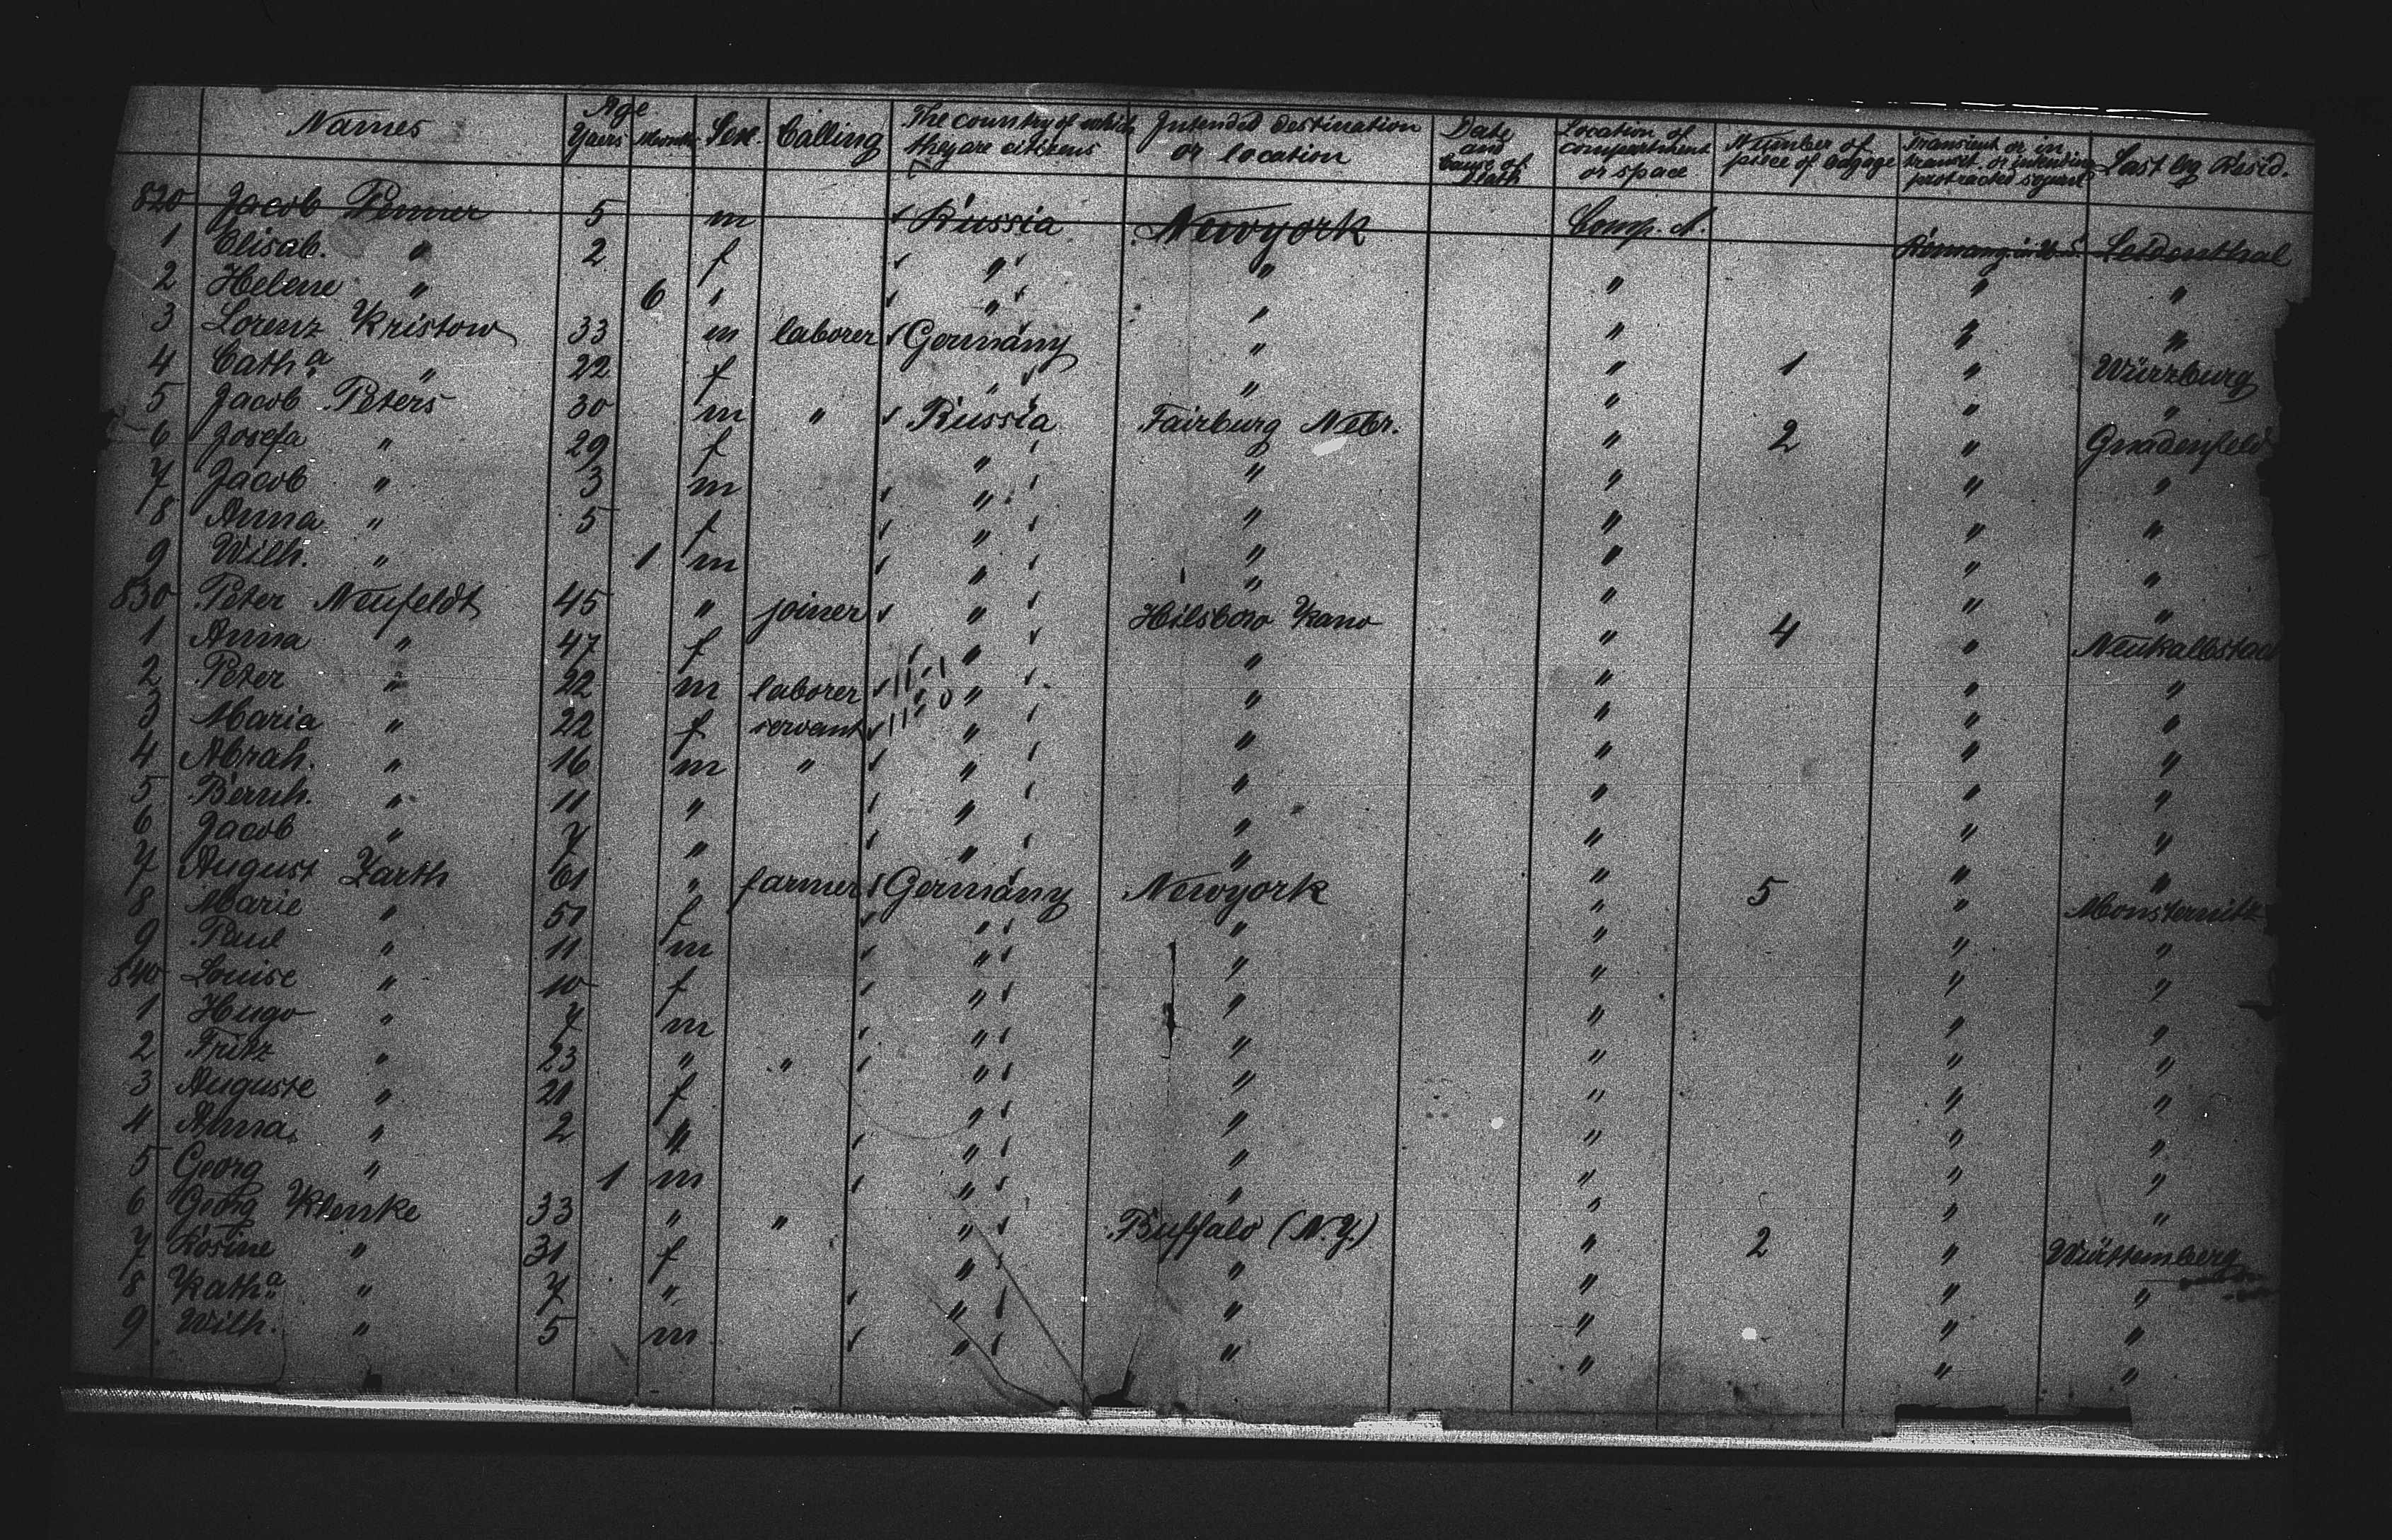 Names Age Years Months Sex. Calling The country of which they are citizens Intended destination or location Date and Cause of Death Location of compartment or space Number of piece of bagage Transient or in transit or intending protracted sojourn Last leg Resid.
820 Jacob Penner 5 m Russia Newyork Comp. A.
1 Elisab. " 2 f " " " " "
2 Helene " 6 " " " " " "
3 Lorenz Kristow 33 m laborer Germany " " 1 " Würzburg
4 Cath.a " 22 f " " " " "
5 Jacob Peters 30 m " Russia Fairburg Nebr. " 2 " Gnadenfeld
6 Josefa " 29 f " " " " "
7 Jacob " 3 m " " " " "
8 Anna " 5 f " " " " "
9 Wilh. " 1 m " " " " "
830 Peter Neufeldt 45 " joiner " Hilsboro Kans " 4 "
1 Anna " 47 f " " " " "
2 Peter " 22 m laborer " " " " "
3 Maria " 22 f servant " " " " "
4 Abrah. " 16 m " " " " " "
5 Bernh. " 11 " " " " " "
6 Jacob " 7 " " " " " "
7 August Zarth 61 " farmer Germany Newyork " 5 "
8 Marie " 51 f " " " " "
9 Paul " 11 m " " " " "
840 Louise " 10 f " " " " "
1 Hugo " 7 m " " " " "
2 Fritz " 23 " " " " " " "
3 Auguste " 21 f " " " " "
4 Anna " 2 " " " " " "
5 Georg " 1 m " " " " "
6 Georg Klenke 33 " " " Buffalo (N.Y.) " 2 " Württemberg
7 Rosine " 31 f " " " " "
8 Kath.a " 7 " " " " " "
9 Wilh. " 5 m " " " " "